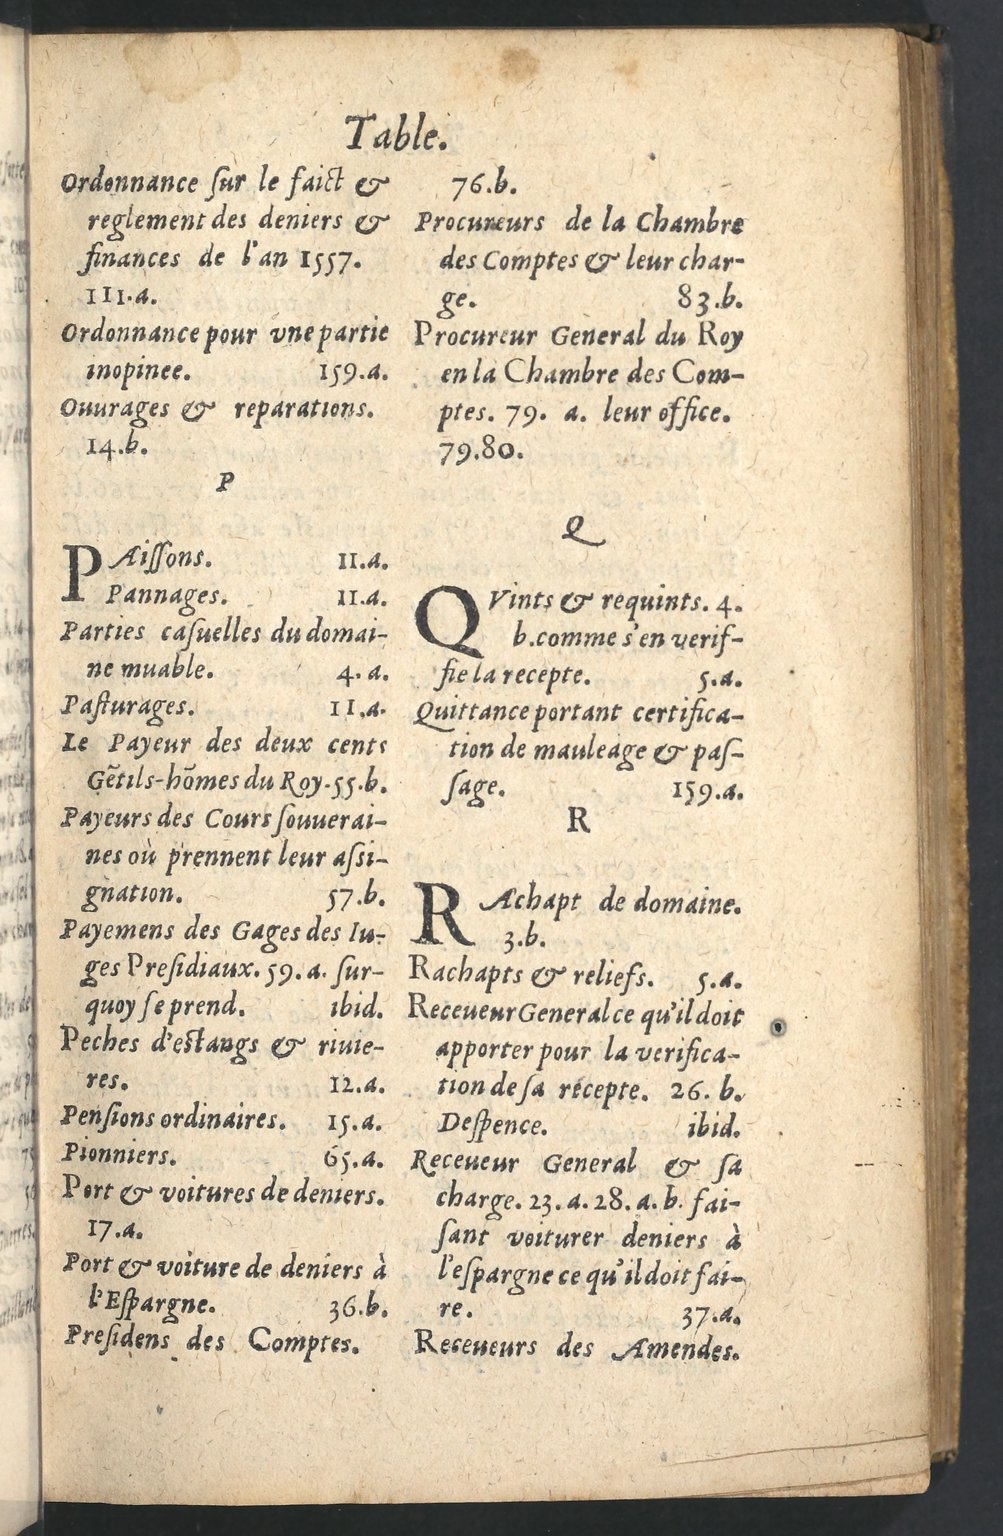 Table.
Ordonnance ſur le faict &
reglement des deniers &
finances de l'an 1557.
111.a.
Ordonnance pour vne partie
inopinee. 159.a.
Ouurages & reparations.
14.b.
P
PAiſſons. 11.a.
Pannages. 11.a.
Parties caſuelles du domai-
ne muable. 4.a.
Paſturages. 11.a.
Le Payeur des deux cents
Gẽtils-hõmes du Roy.55.b.
Payeurs des Cours ſouuerai-
nes où prennent leur aſsi-
gnation. 57.b.
Payemens des Gages des Iu-
ges Preſidiaux.59.a. ſur-
quoy ſe prend. ibid.
Peches d'estangs & riuie-
res. 12.a.
Penſions ordinaires. 15.a.
Pionniers. 65.a.
Port & voitures de deniers.
17.a.
Port & voiture de deniers à
l'Eſpargne. 36.b.
Preſidens des Comptes.
76.b.
Procureurs de la Chambre
des Comptes & leur char-
ge. 83.b.
Procureur General du Roy
en la Chambre des Com-
ptes. 79. a. leur office.
79.80.
Q
QVints & requints. 4.
b.comme s'en verif-
fie la recepte. 5.a.
Quittance portant certifica-
tion de mauleage & paſ-
ſage. 159.a.
R
RAchapt de domaine.
3.b.
Rachapts & reliefs. 5.a.
Receueur General ce qu'il doit
apporter pour la verifica-
tion de ſa recepte. 26. b.
Deſpence. ibid.
Receueur General & ſa
charge. 23. a. 28. a. b. fai-
ſant voiturer deniers à
l'eſpargne ce qu'il doit fai-
re. 37.a.
Receueurs des Amendes.